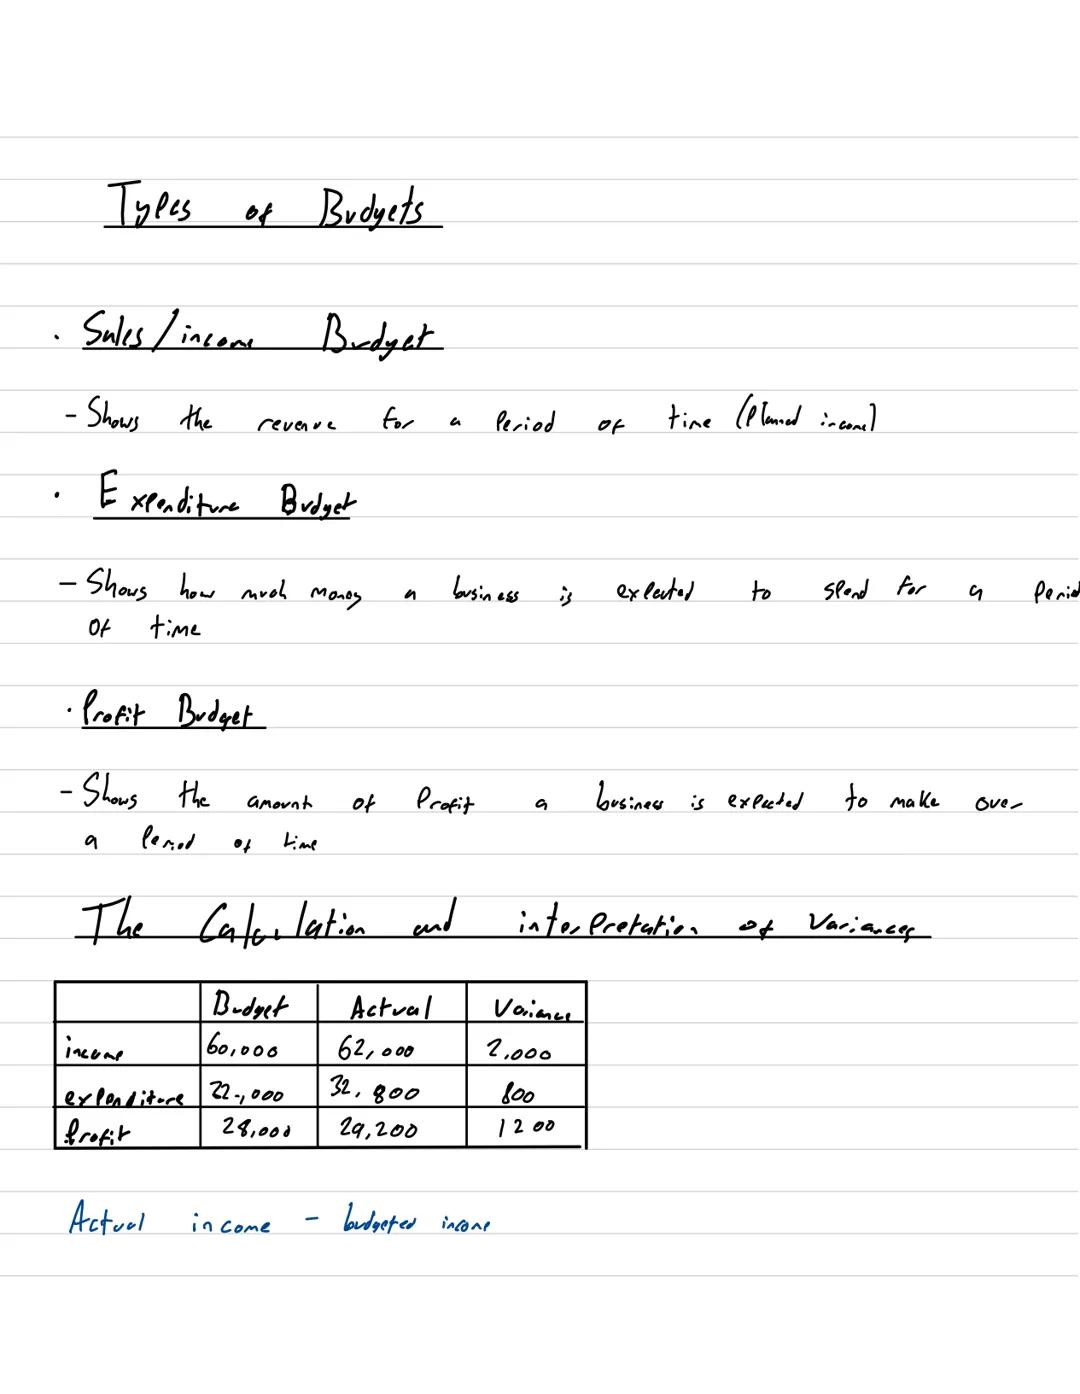 Types of Budgets
· Sales/income Budget
- Shows the revenue for a Period of time (Planned income)
· Expenditure Budget
- Shows how much money a business is expected to spend for a Period
of time
· Profit Budget
- Shows the amount of Profit a business is expected to make over
a Period of time
The Calculation and interpretation of Variances
Budget Actual Variance
income 60,000 62,000 2,000
expenditure 32,800 800
Profit 28,000 29,200 1200
Actual income - budgeted income